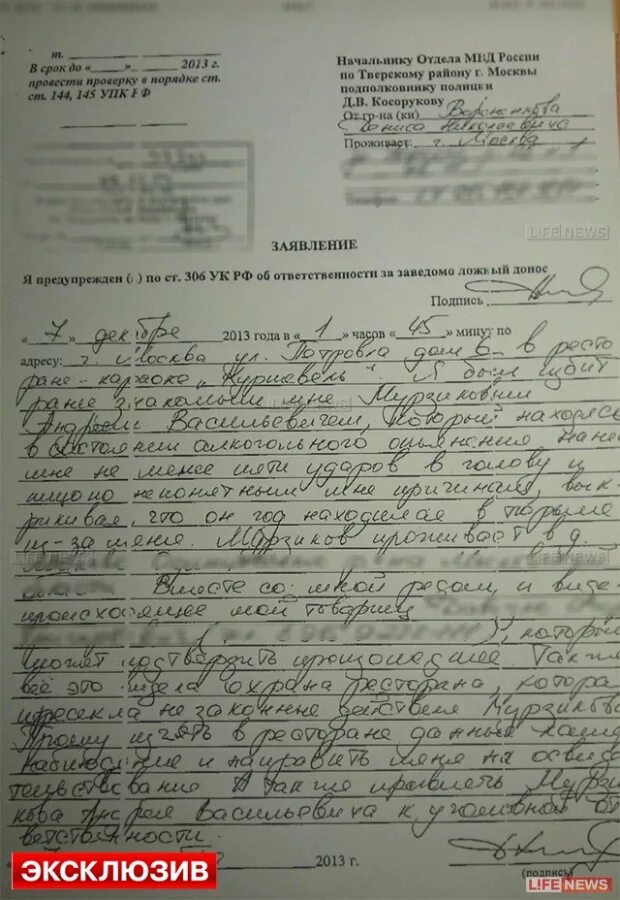 т.
В срок до « » 2013 г.
провести проверку в порядке ст.
ст. 144, 145 УПК РФ
Начальнику Отдела МВД России
по Тверскому району г. Москвы
подполковнику полиции
Д.В. Косорукову
От гр-на (ки) Вороненкова
Дениса Николаевича
Проживает: г. Москва
LIFE NEWS
ЗАЯВЛЕНИЕ
Я предупрежден ( ) по ст. 306 УК РФ об ответственности за заведомо ложный донос
Подпись
« 7 » декабре 2013 года в « 1 » часов « 45 » минут по
адресу: г. Москва ул. Петровка дом 6 в ресто
ране-караоке „Куршевель". Я был избит
ранее знакомым мне Мурзиковым
Андреем Васильевичем, который находясь
в состоянии алкогольного опьянения нанес
мне не менее пяти ударов в голову и
лицо по непонятным мне причинам, вык
рикивая, что он год находился в тюрьме
из-за меня. Мурзиков проживает в д.
LIFE NEWS
Вместе со мной рядом, и виде
происходящее мой товарищ
), который
может подтвердить произошедшее Также
всё это видела охрана ресторана, котора
пресекла не законные действия Мурзикова
Прошу изъять в ресторане данные каме
наблюдение и направить меня на осви
тельствование. А также привлечь Мурзи
кова Андрея Васильевича к уголовной от
ветственности.
2013 г.
(подпись)
ЭКСКЛЮЗИВ
LIFE NEWS